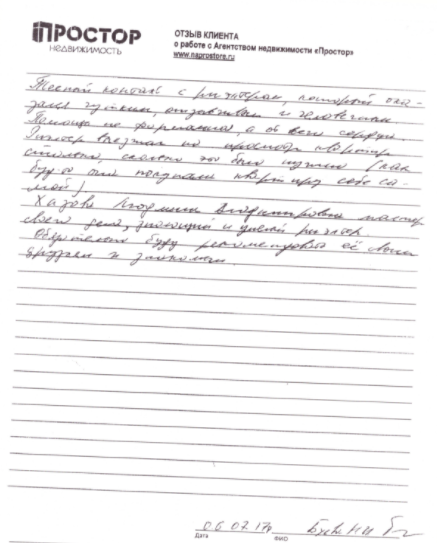 ПРОСТОР
НЕДВИЖИМОСТЬ
ОТЗЫВ КЛИЕНТА
о работе с Агентством недвижимости «Простор»
www.naprostore.ru
Тесный контакт с риэлтером, который ока-
зался чутким, отзывчивым и человечным.
Помощь не формальная, а от всего сердца.
Риэлтер выезжал на просмотр квартир
столько, сколько это было нужно (как
будто она покупала квартиру себе са-
мой).
Хазова Людмила Владимировна мастер
своего дела, знающий и умелый риэлтер.
Обязательно буду рекомендовать её своим
друзьям и знакомым.
06 07 17г
Дата
ФИО